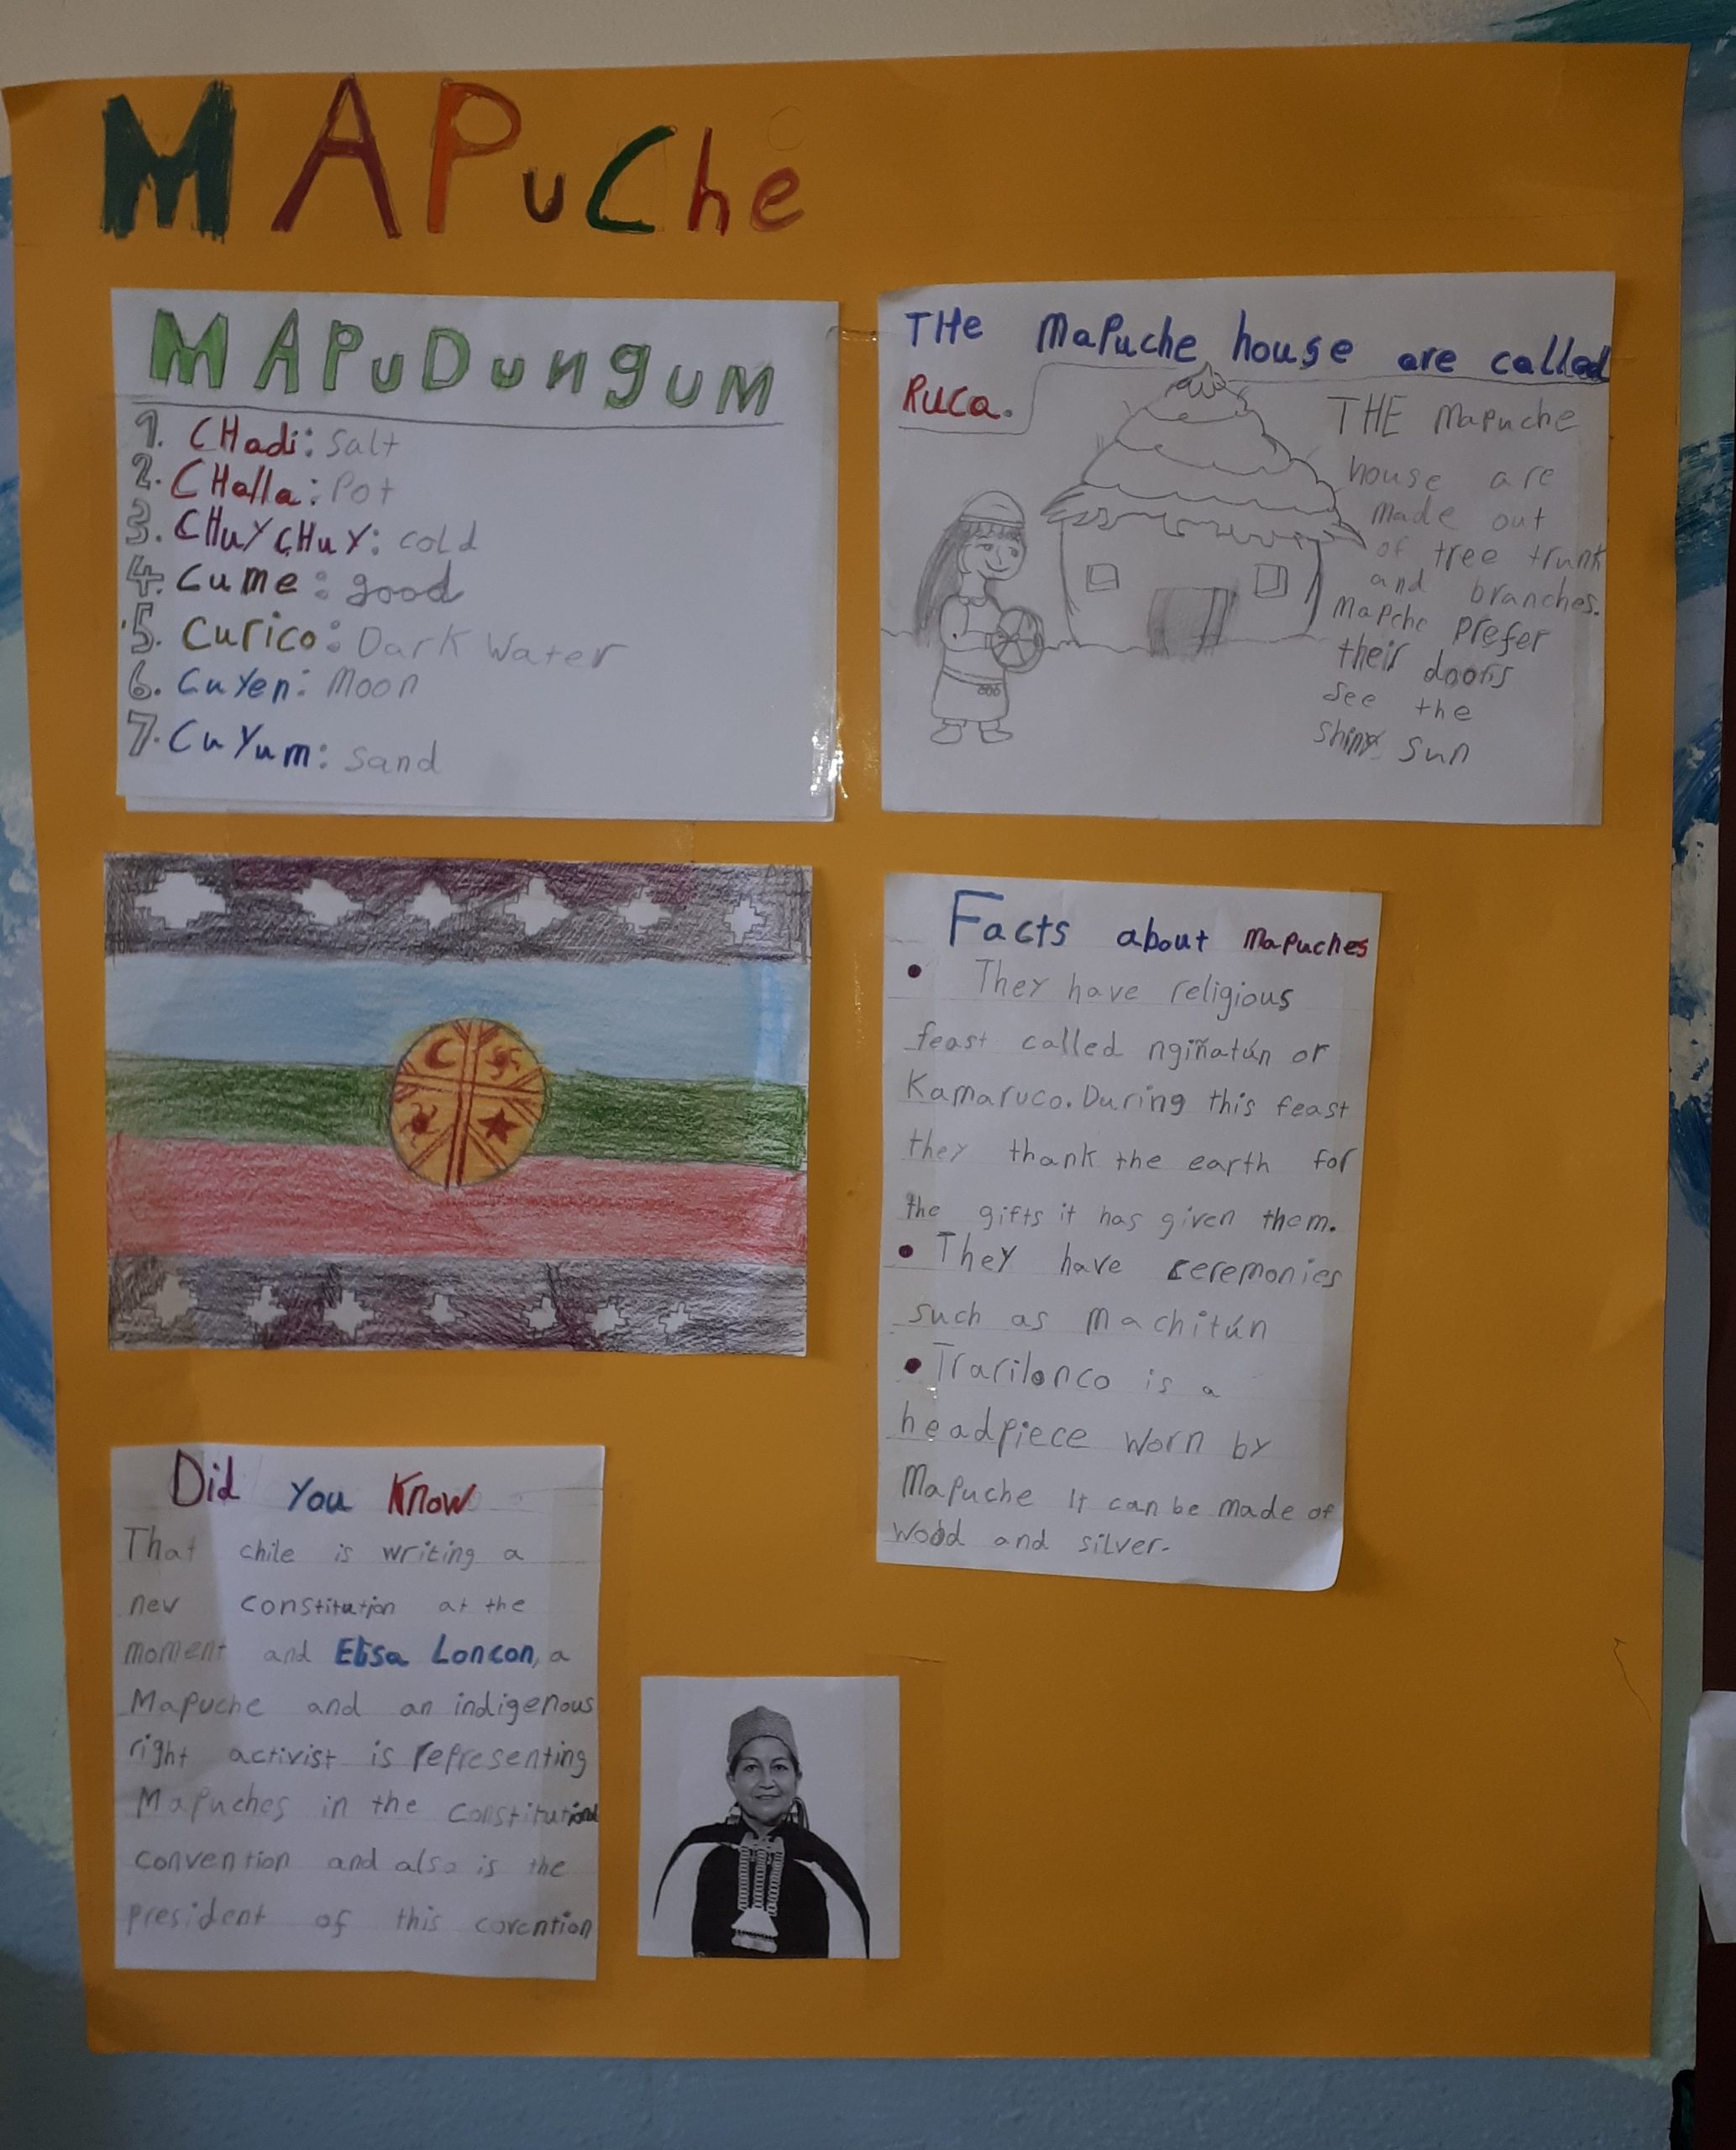 MAPuChe
MAPuDungum
1. CHadi: Salt
2. CHalla: Pot
3. CHuYcHuY: cold
4. Cume: good
5. Curico: Dark Water
6. CuYen: Moon
7. CuYum: Sand
THe MaPuche house are called
Ruca.
THE Mapuche
house are
made out
of tree trunk
and branches.
Mapche prefer
their doors
see the
shiny sun
Facts about Mapuches
• They have religious
feast called ngiñatún or
Kamaruco. During this feast
they thank the earth for
the gifts it has given them.
• They have ceremonies
such as Machitún
• Trarilonco is a
headpiece worn by
Mapuche It can be made of
wood and silver.
Did You Know
That chile is writing a
new constitution at the
moment and Elisa Loncon, a
Mapuche and an indigenous
right activist is representing
Mapuches in the constitutional
convention and also is the
president of this covention